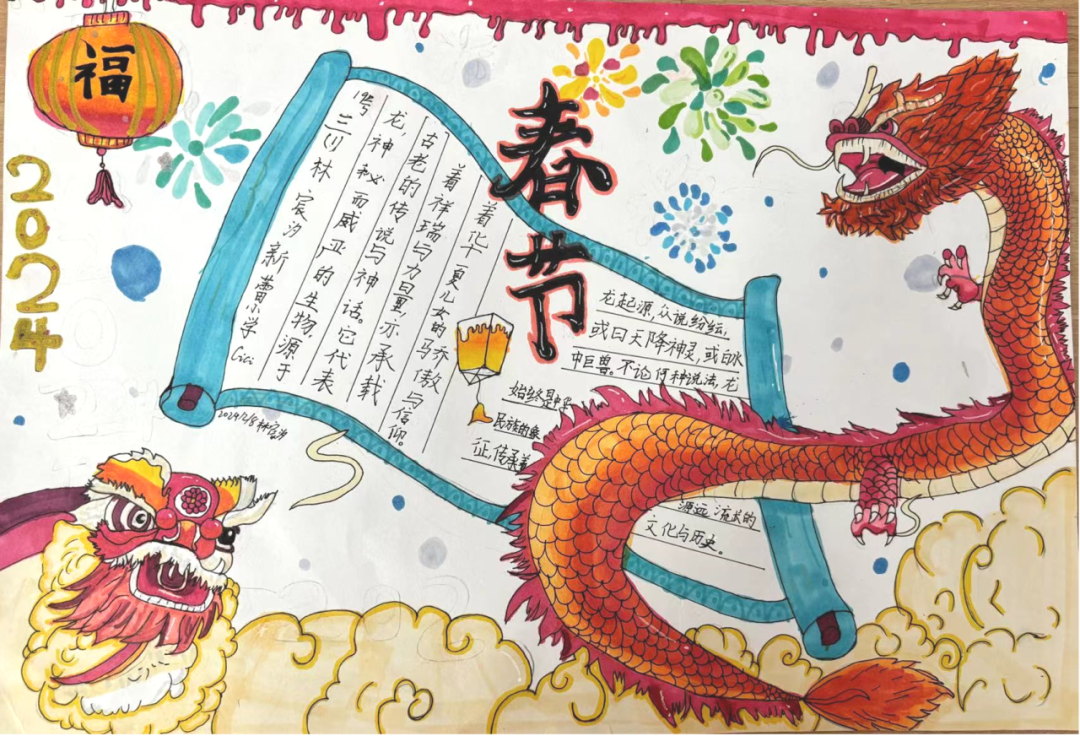 福
2024
春节
三(1) 林宸汐 新蕾小学 Cici
龙神秘而威严的生物,源于
古老的传说与神话。它代表
着祥瑞与力量,亦承载
着华夏儿女的骄傲与信仰。
龙起源,众说纷纭,
或曰天降神灵,或曰水
中巨兽。不论何种说法,龙
始终是中华
民族的象
征,传承着
源远流长的
文化与历史。
2024/2/8 林宸汐